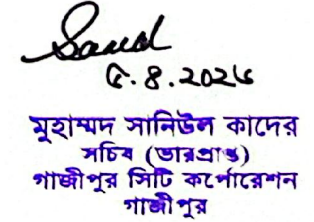 ৫.৪.২০২৬
মুহাম্মদ সানিউল কাদের
সচিব (ভারপ্রাপ্ত)
গাজীপুর সিটি কর্পোরেশন
গাজীপুর